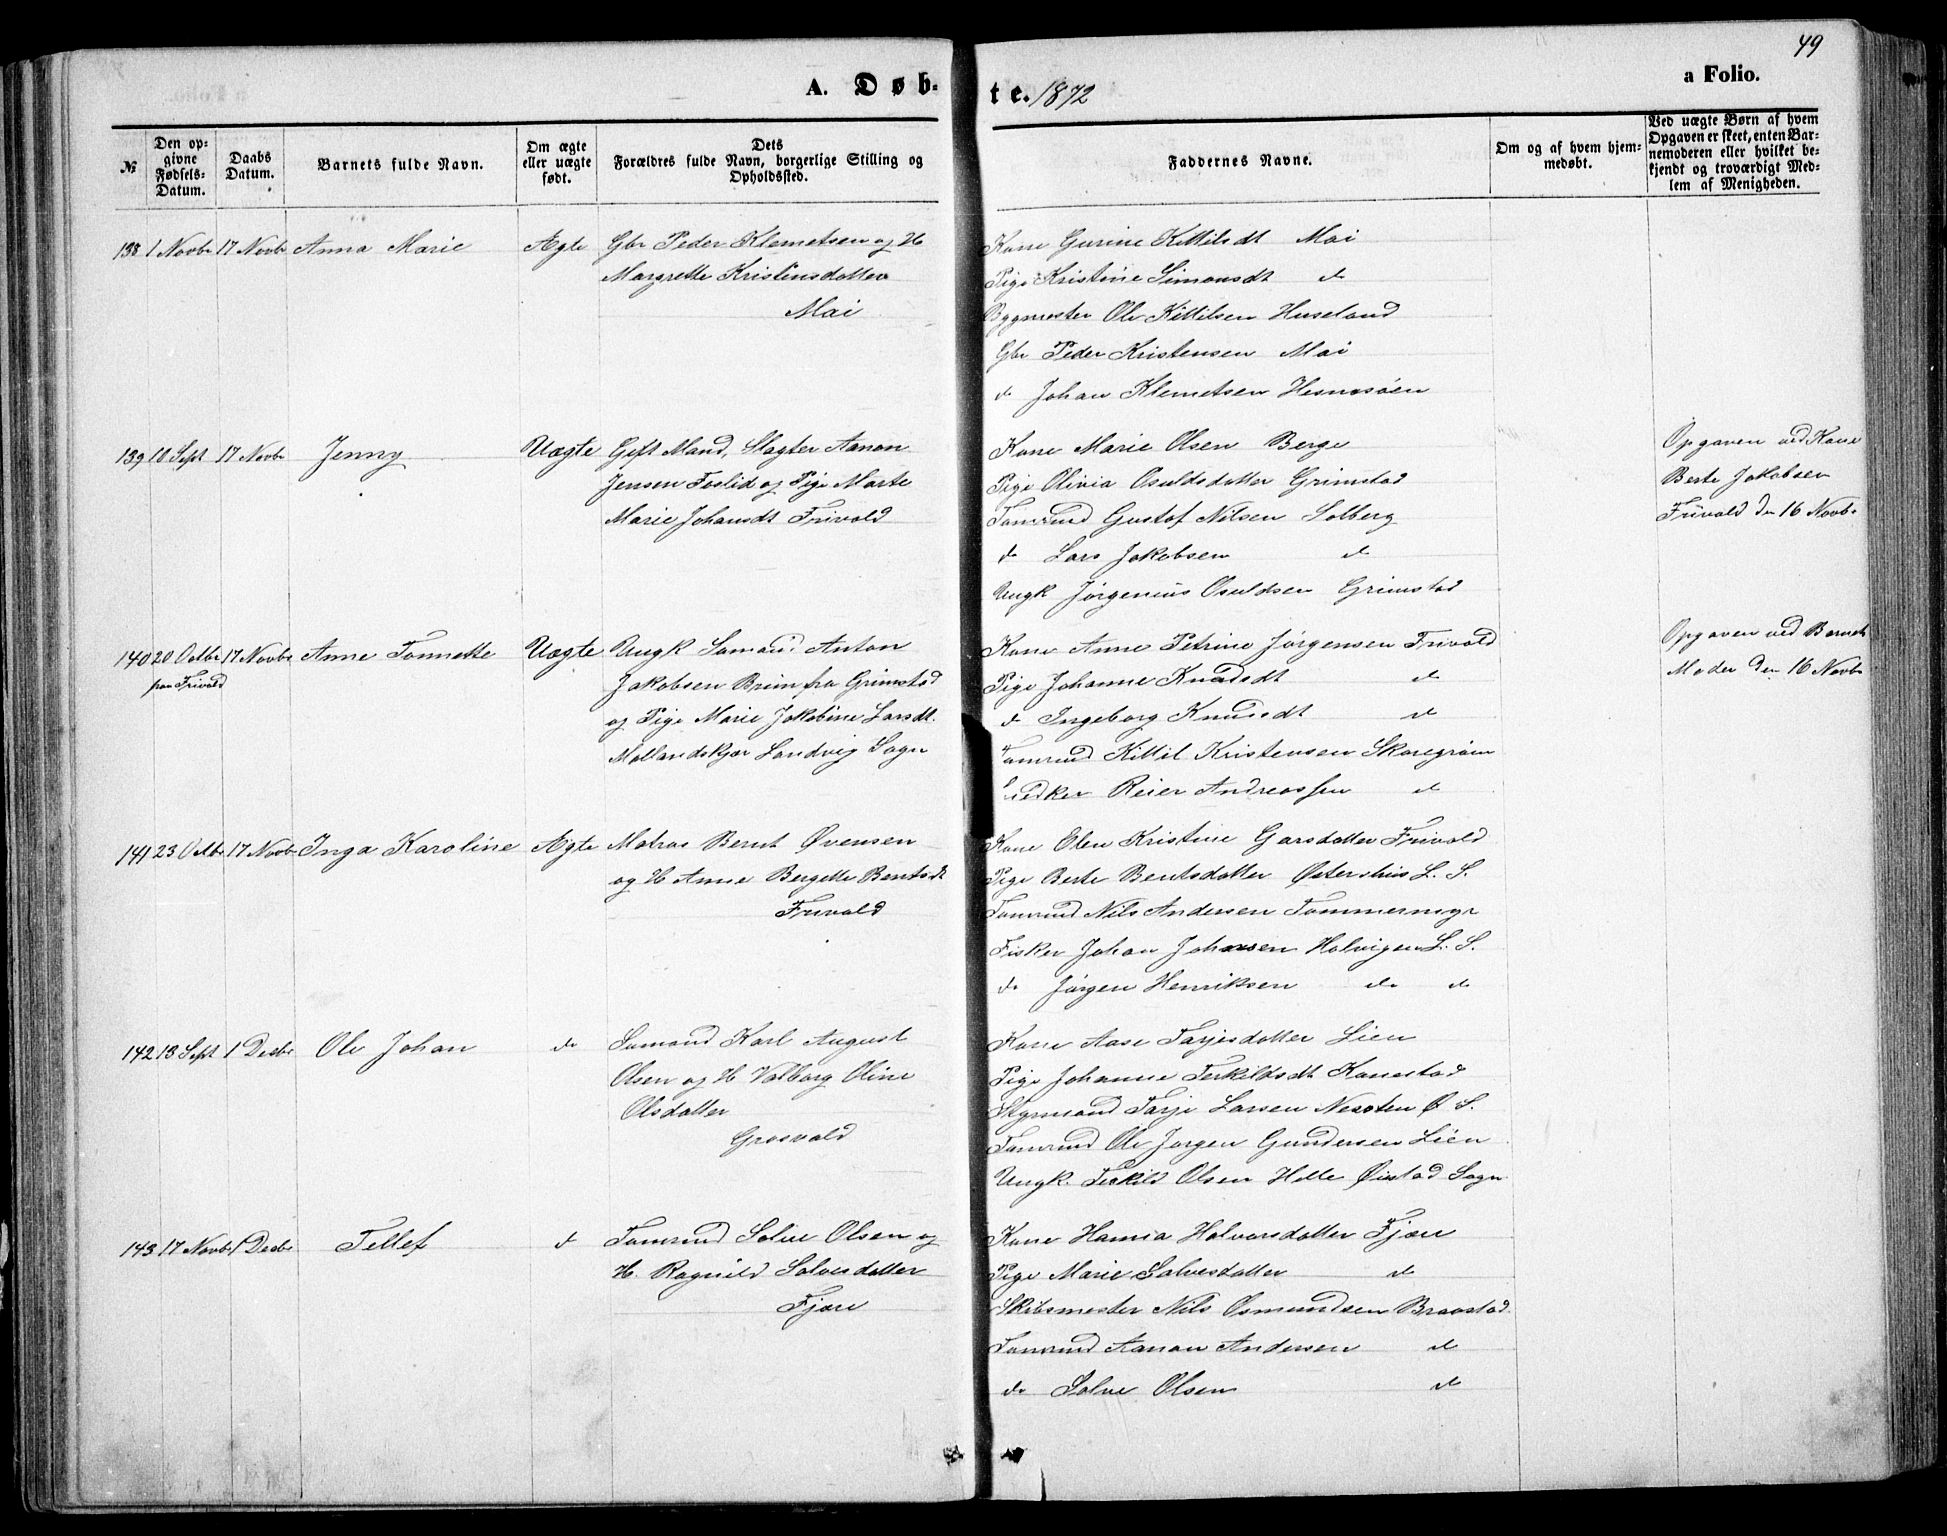 49
A. Døb-
te. 1872
a Folio.
№
Den op-
givne
Fødsels-
Datum.
Daabs
Datum.
Barnets fulde Navn.
Om ægte
eller uægte
født.
Dets
Forældres fulde Navn, borgerlige Stilling og
Opholdssted.
Faddernes Navne.
Om og af hvem hjem-
medøbt.
Ved uægte Børn af hvem
Opgaven er skeet, enten Bar-
nemoderen eller hvilket be-
kjendt og troværdigt Med-
lem af Menigheden.
138 1 Novbr 17 Novbr Anna Marie Ægte Gbr Peder Klemetsen og H
Margrethe Kristensdatter
Mai
Kone Gurine Kittilsdt Mai
Pige Kristine Simonsdt do
Bygmester Ole Kittilsen Huseland
Gbr Peder Kristensen Mai
do Johan Klemetsen Hesnesøen
139 18 Sept 17 Novbr Jenny Uægte Gift Mand, Slagter Aanon
Jensen Foslid og Pige Marte
Marie Johansdt Frivold
Kone Marie Olsen Berge
Pige Olivia Osuldsdatter Grimstad
Tømrmd Gustof Nilsen Solberg
do Lars Jakobsen do
Ungk Jørgenius Osuldsen Grimstad
Opgaven ved Kone
Berte Jakobsen
Frivold den 16 Novbr
140 20 Octbr 17 Novbr Anne Tonnette Uægte Ungk Sømand Anton
paa Frivold
Jakobsen Briin fra Grimstad
og Pige Marie Jakobine Larsdt.
Mollandskjær Landvig Sogn
Kone Anne Petrine Jørgensen Frivold
Pige Johanne Knudsdt do
do Ingeborg Knudsdt do
Tømrmd Kittil Kristensen Skaregrøm
Reier Andreassen do
Opgaven ved Barnets
Moder den 16 Novbr
141 23 Octbr 17 Novbr Inga Karoline Ægte Matros Bernt Øvensen
og H Anne Bergitte Bentsdt
Frivold
Kone Elen Kristine Garsdatter Frivold
Pige Berte Bentsdatter Østerhus L. S.
Tømrmd Nils Andersen Tømmermyr
Fisker Johan Johnsen Halvigen L. S.
do Jørgen Henriksen do do
142 13 Sept 1 Decbr Ole Johan do Sømand Karl August
Olsen og H Valborg Oline
Olsdatter
Grosvold
Kone Aase Tarjesdatter Lien
Pige Johanne Terkildsdt Kanestad
Stymand Tarje Larsen Nesoten Ø S.
Tømrmd Ole Jørgen Gundersen Lien
Ungk. Terkild Olsen Helle Øiestad Sogn
143 17 Novbr 1 Decbr Tellef do Tømrmd Salve Olsen og
H. Ragnild Salvesdatter
Fjære
Kone Hanna Halvorsdatter Fjære
Pige Marie Salvesdatter do
Skibsmester Nils Osmundsen Braastad
Tømrmd Aanon Andersen do
do Salve Olsen do